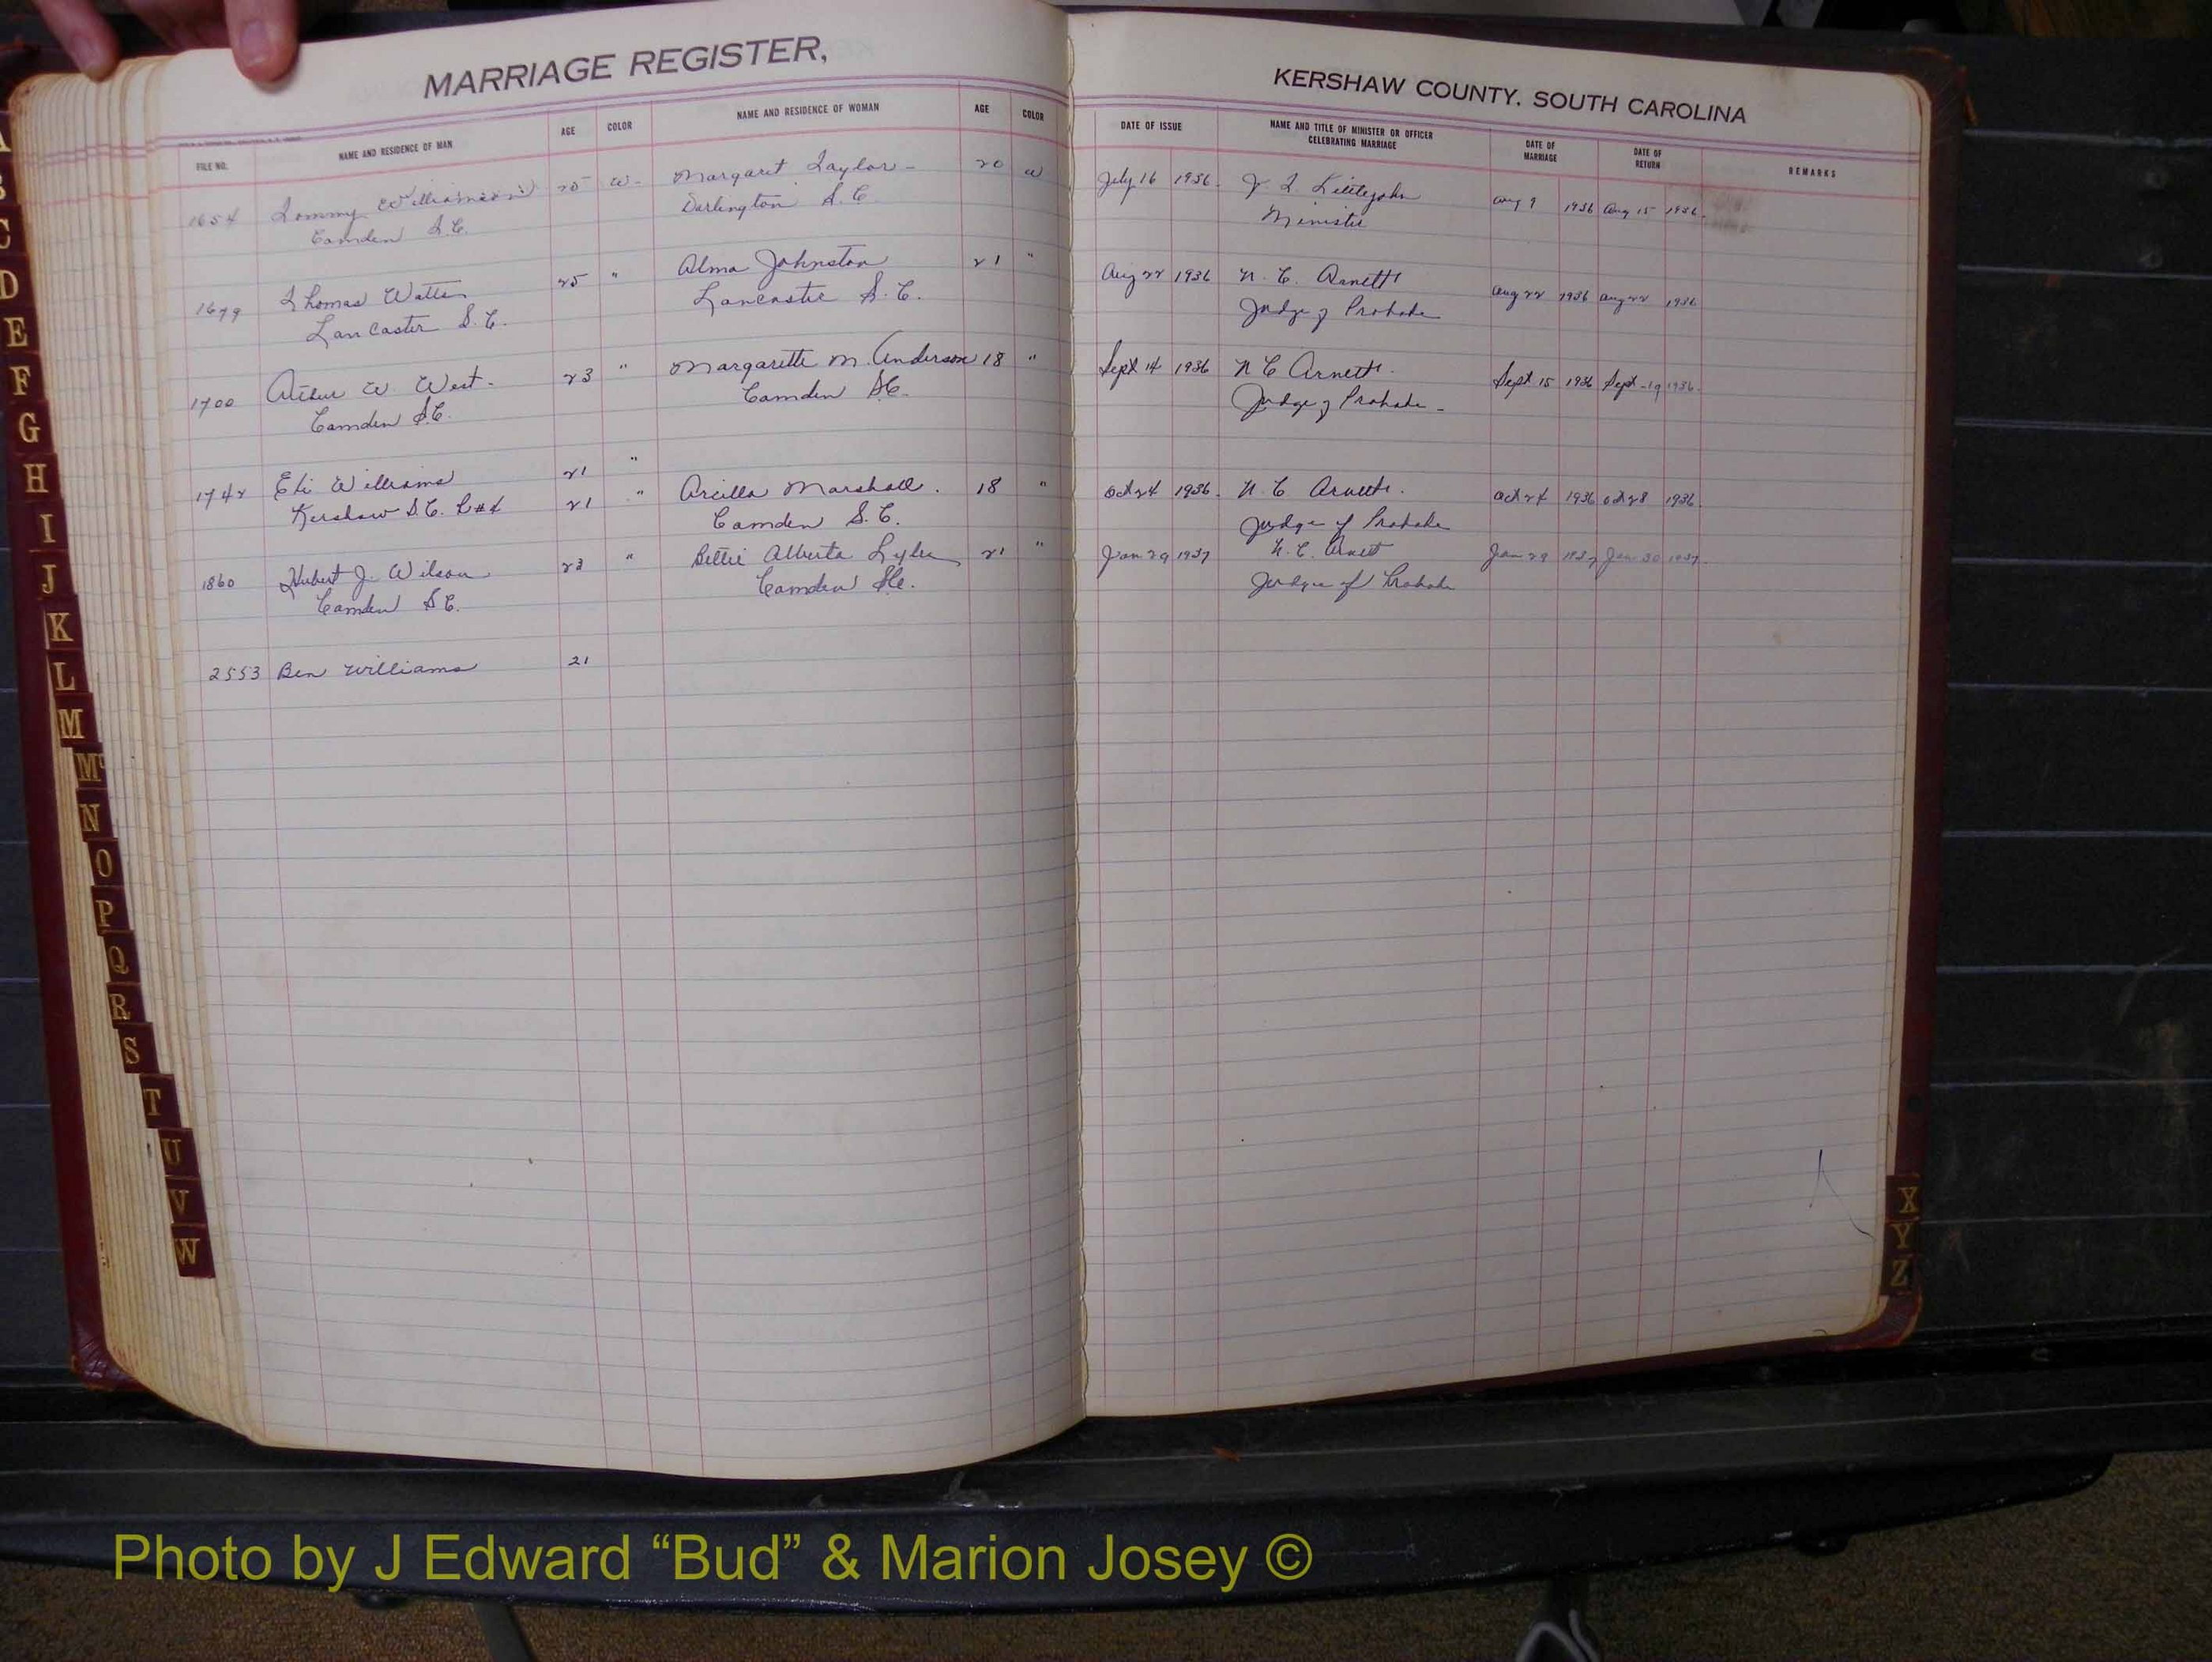 MARRIAGE REGISTER,
KERSHAW COUNTY, SOUTH CAROLINA
FILE NO. NAME AND RESIDENCE OF MAN AGE COLOR NAME AND RESIDENCE OF WOMAN AGE COLOR
DATE OF ISSUE NAME AND TITLE OF MINISTER OR OFFICER CELEBRATING MARRIAGE DATE OF MARRIAGE DATE OF RETURN REMARKS
1654 Tommy Williamson 25 W- Margaret Taylor - 20 W July 16 1936. J. T. Littlejohn Aug 9 1936 Aug 15 1936.
Camden S.C. Darlington S.C. Minister
1679 Thomas Watts 25 " Alma Johnston 21 " Aug 22 1936 N. C. Arnett Aug 22 1936 Aug 22 1936
Lancaster S.C. Lancaster S.C. Judge of Probate
1700 Arthur W. West - 23 " Margarette M. Anderson 18 " Sept 14 1936 N C Arnett. Sept 15 1936 Sept - 19 1936.
Camden S.C. Camden S.C. Judge of Probate -
1742 Eli Williams 21 "
Kershaw S.C. R#4 21 " Arcilla Marshall. 18 " Oct 24 1936. N. C. Arnett. Oct 24 1936 Oct 28 1936.
Camden S.C. Judge of Probate
1860 Hubert J. Wilson 23 " Bettie Alberta Lyles 21 " Jan 29 1937 N. C. Arnett Jan 29 1937 Jan 30 1937.
Camden S.C. Camden S.C. Judge of Probate
2553 Ben Williams 21
A
B
C
D
E
F
G
H
I
J
K
L
M
Mc
N
O
P
Q
R
S
T
U
V
W
X
Y
Z
Photo by J Edward “Bud” & Marion Josey ©